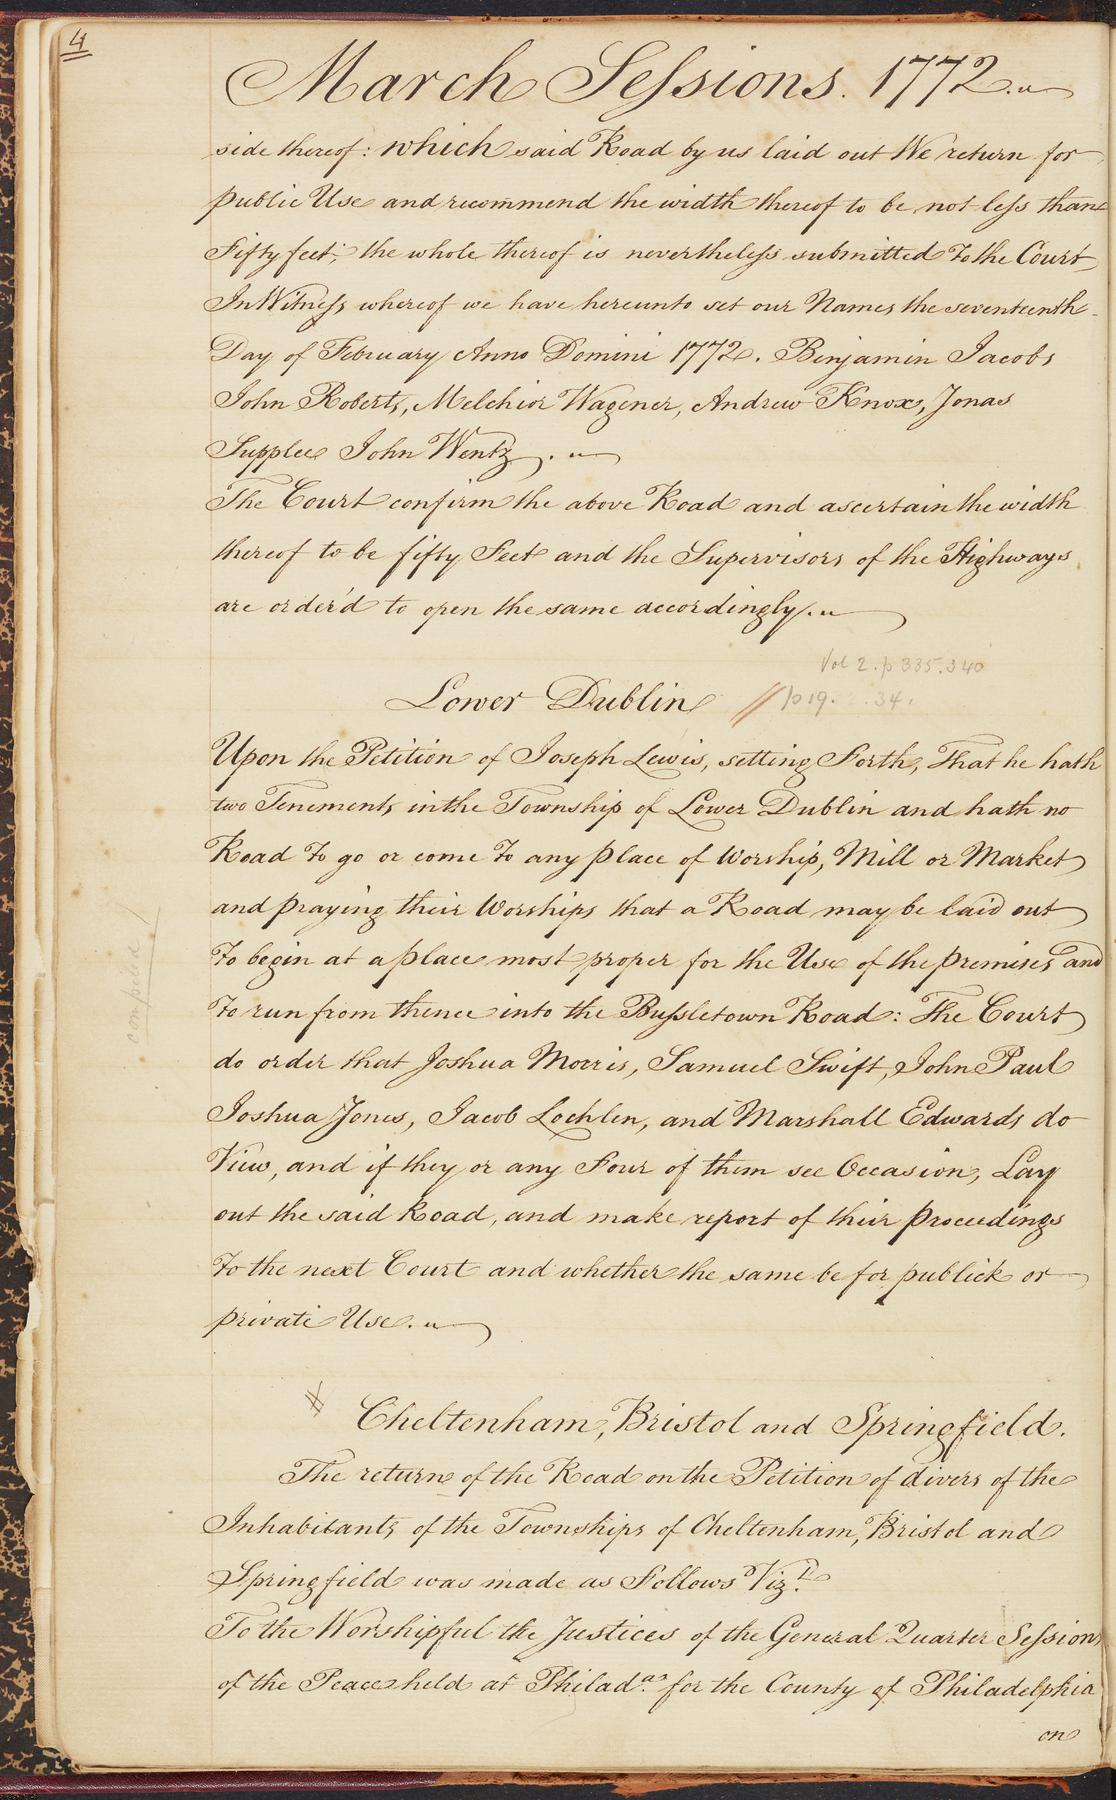 4
March Sessions. 1772.
side thereof: which said Road by us laid out We return for
public Use and recommend the width thereof to be not less than
Fifty feet; the whole thereof is nevertheless submitted to the Court
In Witness whereof we have hereunto set our Names the seventeenth
Day of February Anno Domini 1772. Benjamin Jacobs
John Roberts, Melchior Wagener, Andrew Knox, Jonas
Supplee John Wentz.
The Court confirm the above Road and ascertain the width
thereof to be fifty Feet and the Supervisors of the Highways
are order'd to open the same accordingly.
Vol 2. p 335.340
Lower Dublin // p 19. . 34.
Upon the Petition of Joseph Lewis, setting Forth, That he hath
two Tenements in the Township of Lower Dublin and hath no
Road to go or come to any place of Worship, Mill or Market
and praying their Worships that a Road may be laid out
to begin at a place most proper for the Use of the premises and
to run from thence into the Bussletown Road: The Court
do order that Joshua Morris, Samuel Swift, John Paul
Joshua Jones, Jacob Lochlen, and Marshall Edwards do
View, and if they or any Four of them see Occasion, Lay
out the said Road, and make report of their proceedings
to the next Court and whether the same be for publick or
private Use.
Cheltenham, Bristol and Springfield.
The return of the Road on the Petition of divers of the
Inhabitants of the Townships of Cheltenham, Bristol and
Springfield was made as Follows Vizt.
To the Worshipful the Justices of the General Quarter Sessions
of the Peace held at Philada. for the County of Philadelphia
on